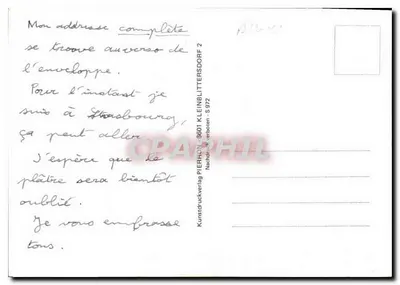 Mon addresse complète
se trouve au verso de
l'enveloppe.
Pour l'instant je
suis à Strasbourg,
ça peut aller
J'espère que le
plâtre sera bientôt
oublié.
Je vous embrasse
tous.
Kunstdruckverlag PIERRON 6601 KLEINBLITTERSDORF 2
Nachdruck verboten - S 972
CPAPHIL